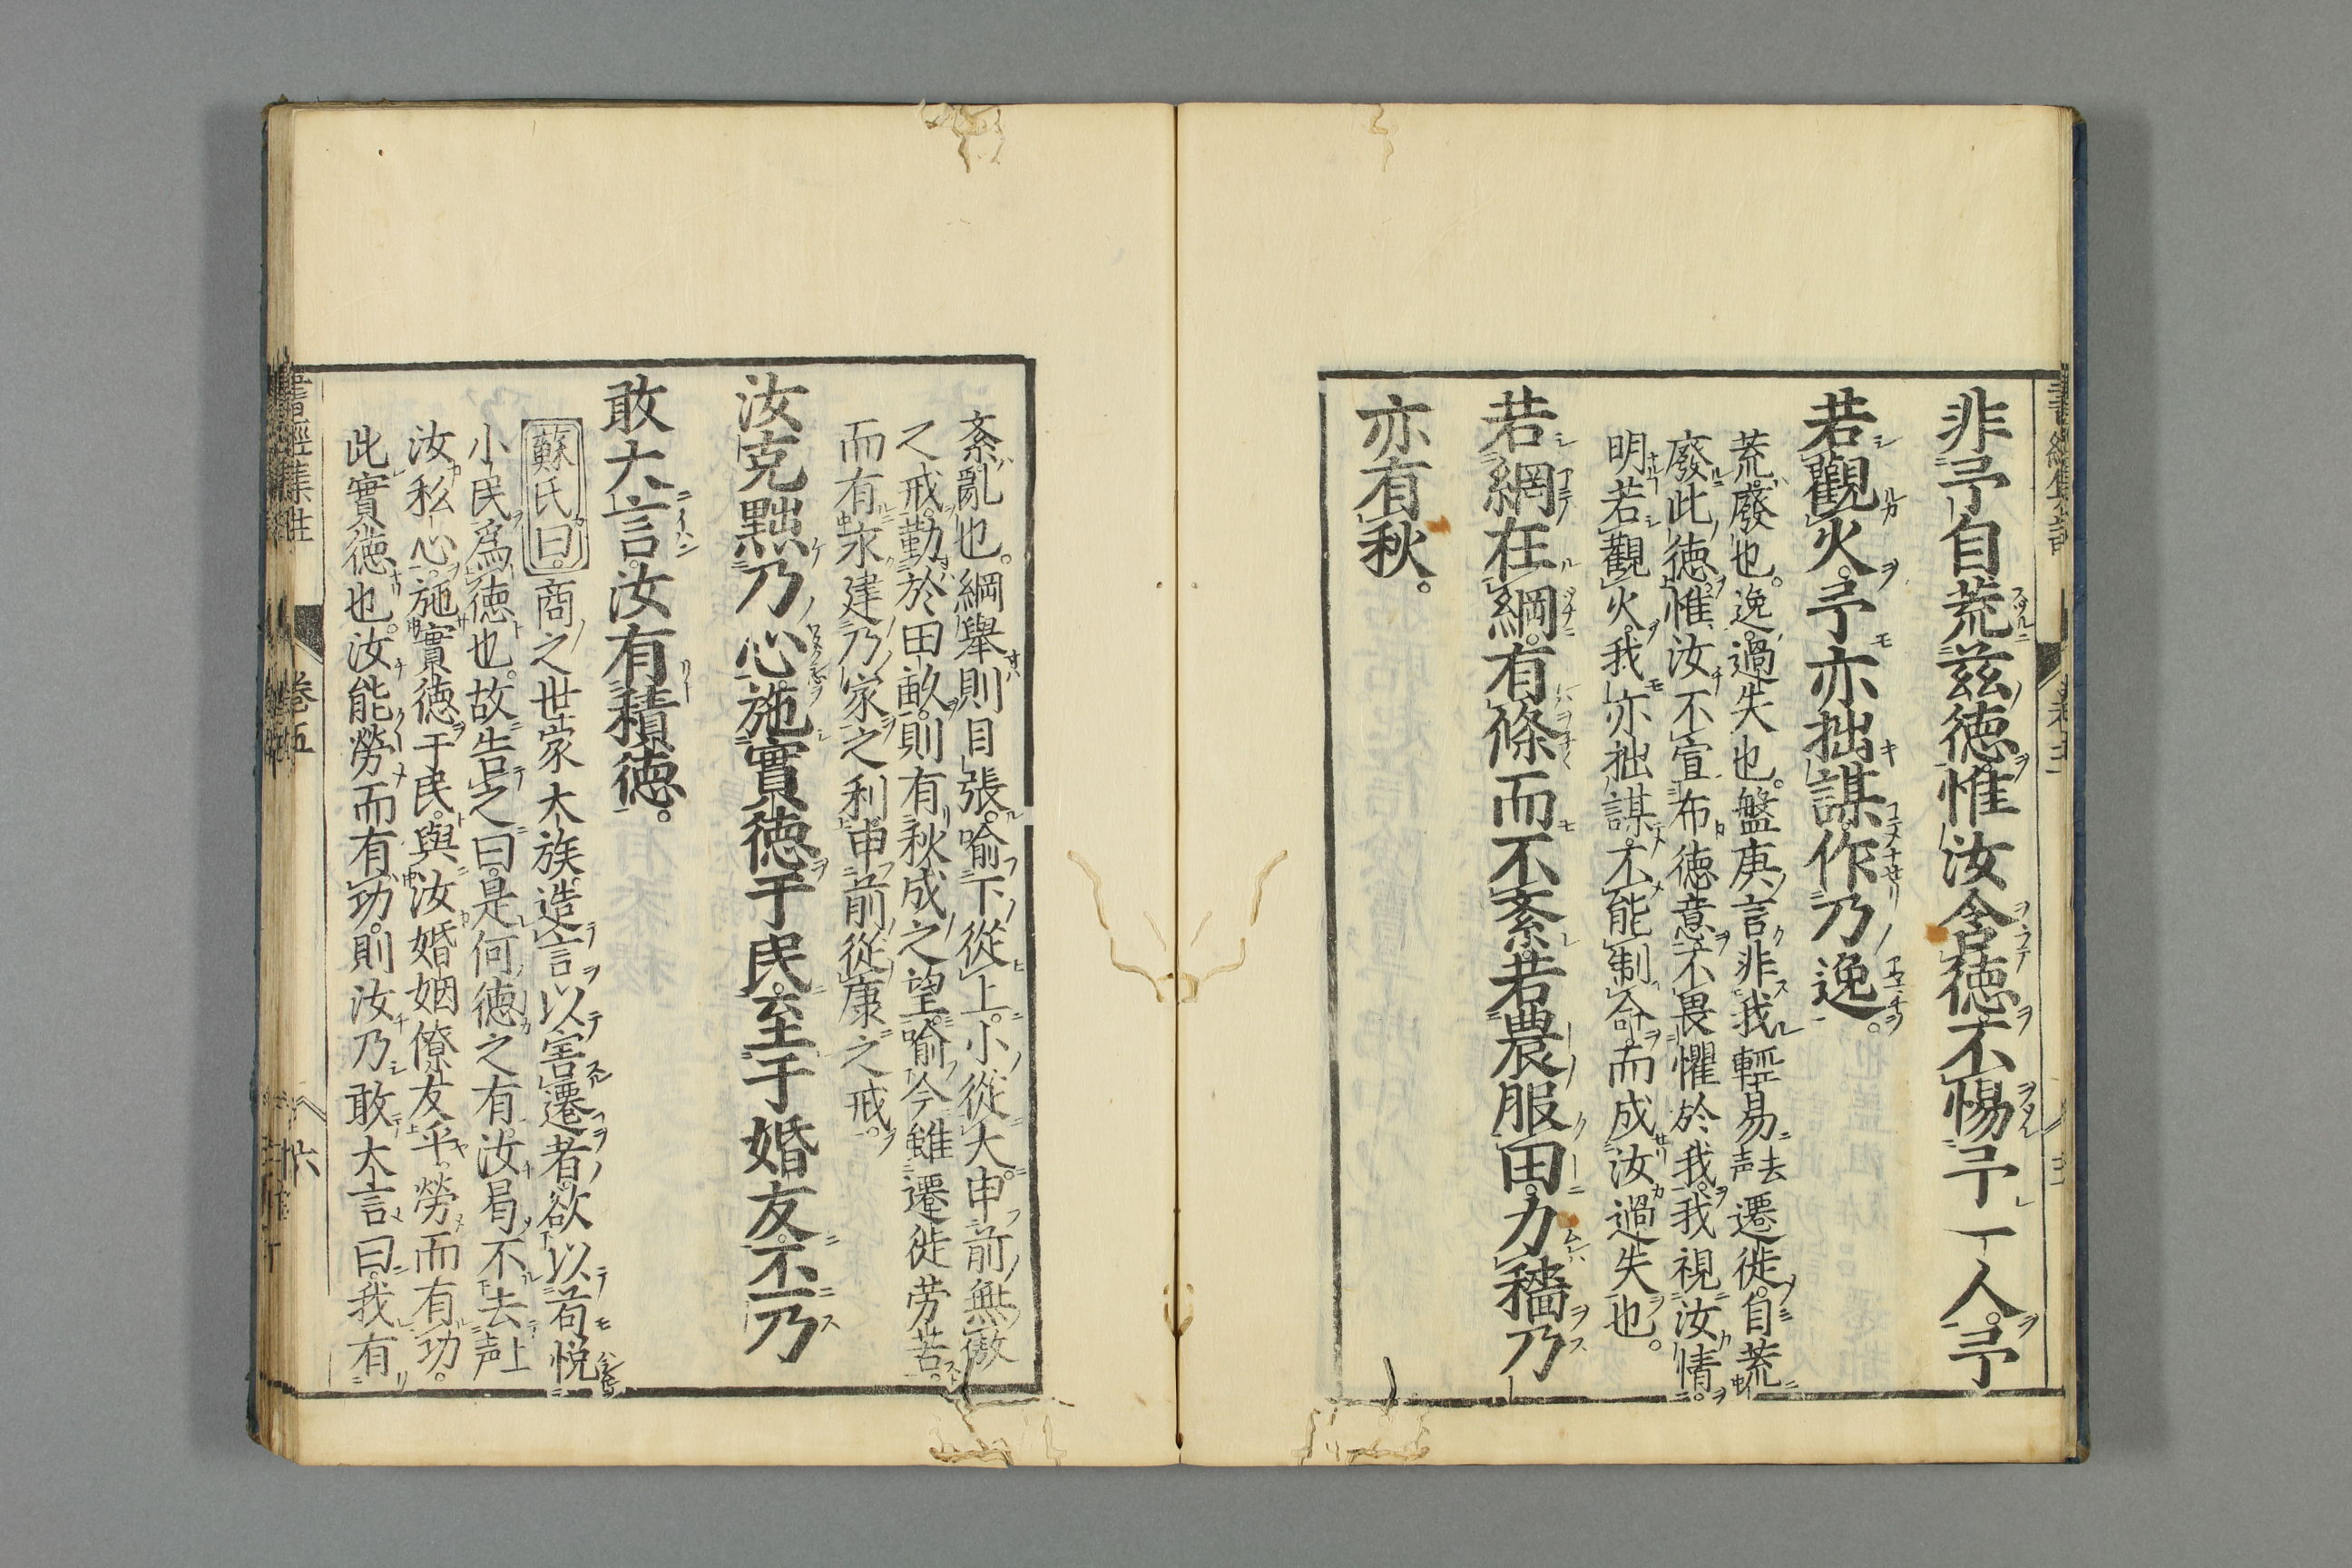 非予自荒茲徳惟汝含徳不惕予一人予
若觀火予亦拙謀作乃逸。
荒廢也。逸過失也。盤庚言非我輕易去声遷徙自荒
廢此徳惟汝不宣布徳意不畏懼於我我視汝情
明若觀火我亦拙謀不能制命而成汝過失也。
若網在綱有條而不紊若農服田力穡乃
亦有秋。
紊亂也。綱舉則目張喻下從上小從大申前無傲
之戒勤於田畝則有秋成之望喻今雖遷徙勞苦。
而有永建乃家之利申前從康之戒。
汝克黜乃心施實徳于民至于婚友丕乃
敢大言汝有積徳。
蘇氏曰。商之世家大族造言以害遷者欲以苟悦
小民爲徳也。故告之曰是何徳之有汝曷不去上声
汝私心施實徳于民與汝婚姻僚友乎勞而有功。
此實徳也。汝能勞而有功則汝乃敢大言曰我有
書經集註 卷五 六